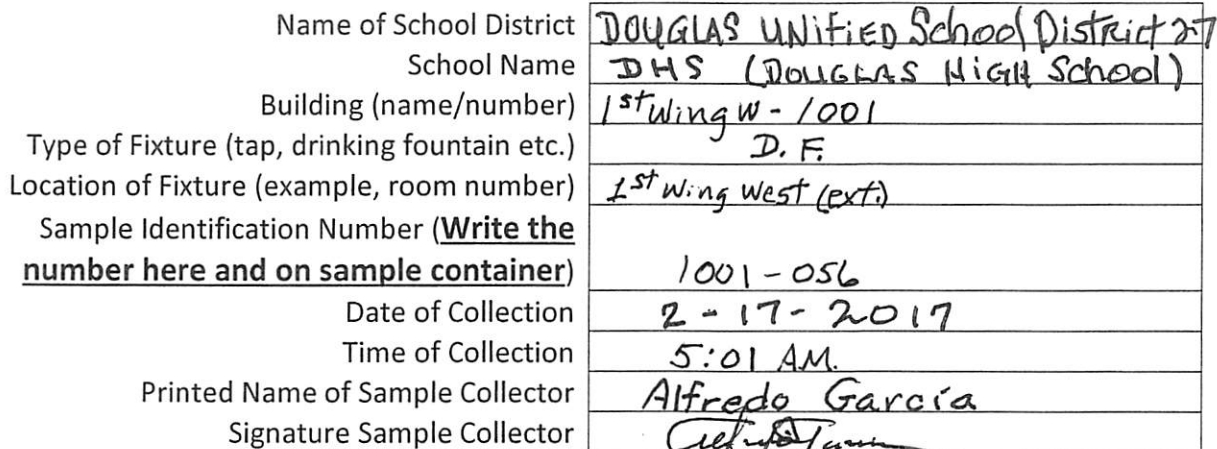 Name of School District DOUGLAS UNIFIED School District 27
School Name DHS (DOUGLAS HIGH School)
Building (name/number) 1st Wing W - 1001
Type of Fixture (tap, drinking fountain etc.) D. F.
Location of Fixture (example, room number) 1st Wing West (ext.)
Sample Identification Number (Write the
number here and on sample container) 1001-056
Date of Collection 2 - 17 - 2017
Time of Collection 5:01 AM.
Printed Name of Sample Collector Alfredo García
Signature Sample Collector